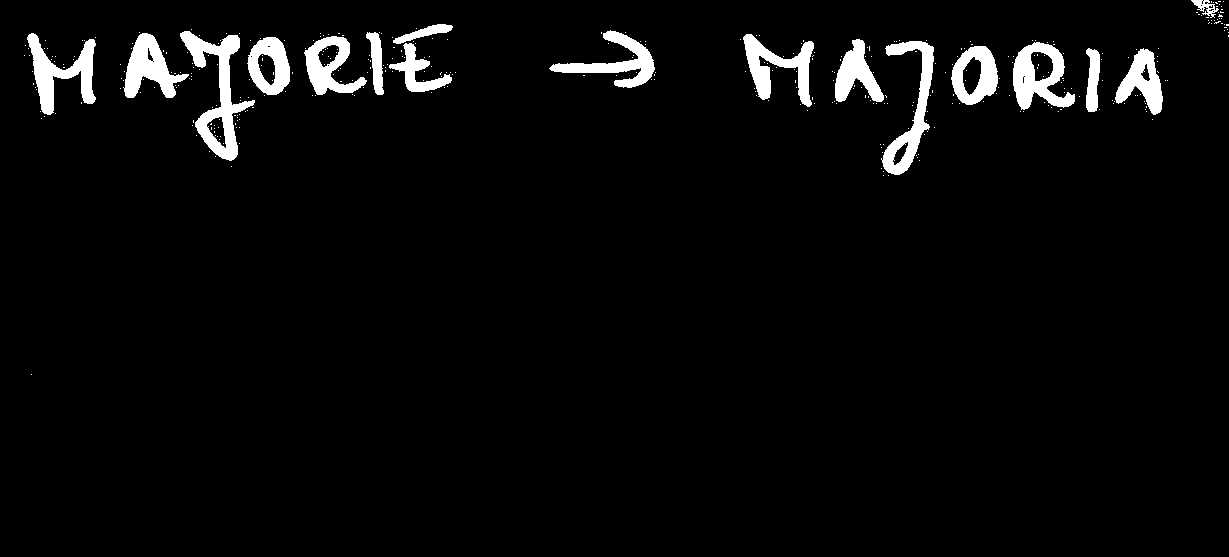 MAJORIE → MAJORIA